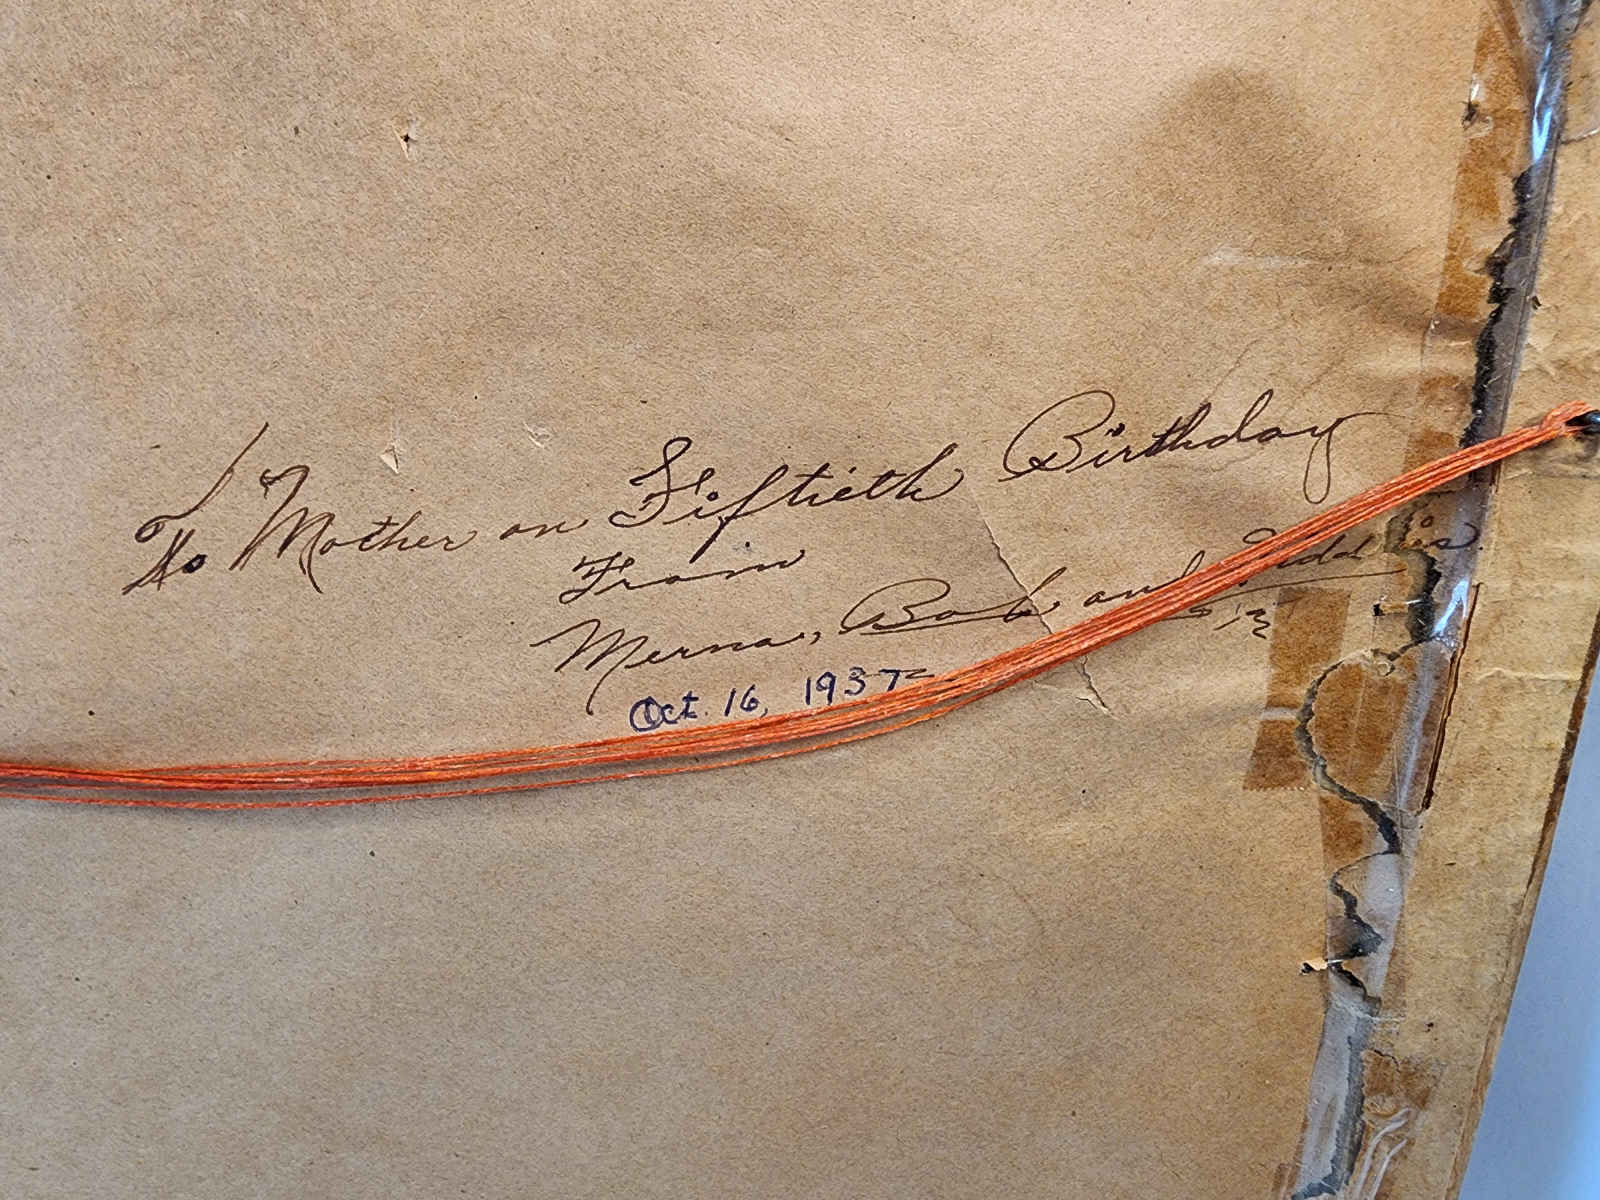 To Mother on Fiftieth Birthday
From
Merna, Bob and
Oct. 16, 1937